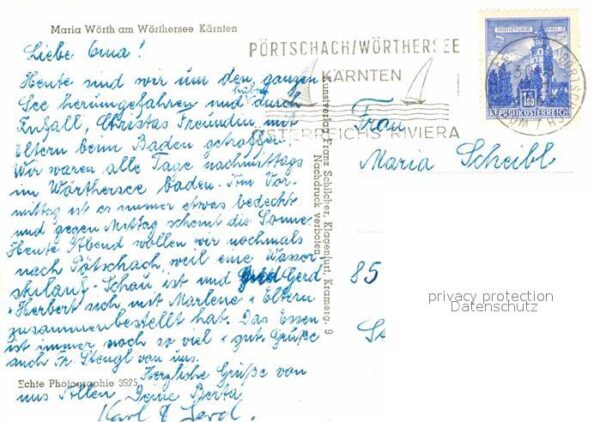 Maria Wörth am Wörthersee Kärnten
Liebe Oma!
Heute sind wir um den ganzen
See herumgefahren und haben durch
Zufall, Christas Freundin mit
Eltern beim Baden getroffen.
Wir waren alle Tage nachmittags
im Wörthersee baden. Am Vor-
mittag ist es immer etwas bedeckt
und gegen Mittag scheint die Sonne.
Heute Abend wollen wir nochmals
nach Pötschach, weil eine Wasser-
skilang-Schau ist und Gerd
+ Herbert sich mit Marlene + Eltern
zusammenbestellt hat. Das Essen
ist immer noch so viel + gut. Grüße
auch Fr. Stengl von uns.
Herzliche Grüße von
uns Deine Berta
Karl &
Echte Photographie 3925
Kunstverlag Franz Schilcher, Klagenfurt, Kramerg. 9
Nachdruck verboten
PÖRTSCHACH/WÖRTHERSEE
KÄRNTEN
ÖSTERREICHS RIVIERA
REPUBLIK ÖSTERREICH
Frau
Maria Scheibl
85
privacy protection
Datenschutz
St